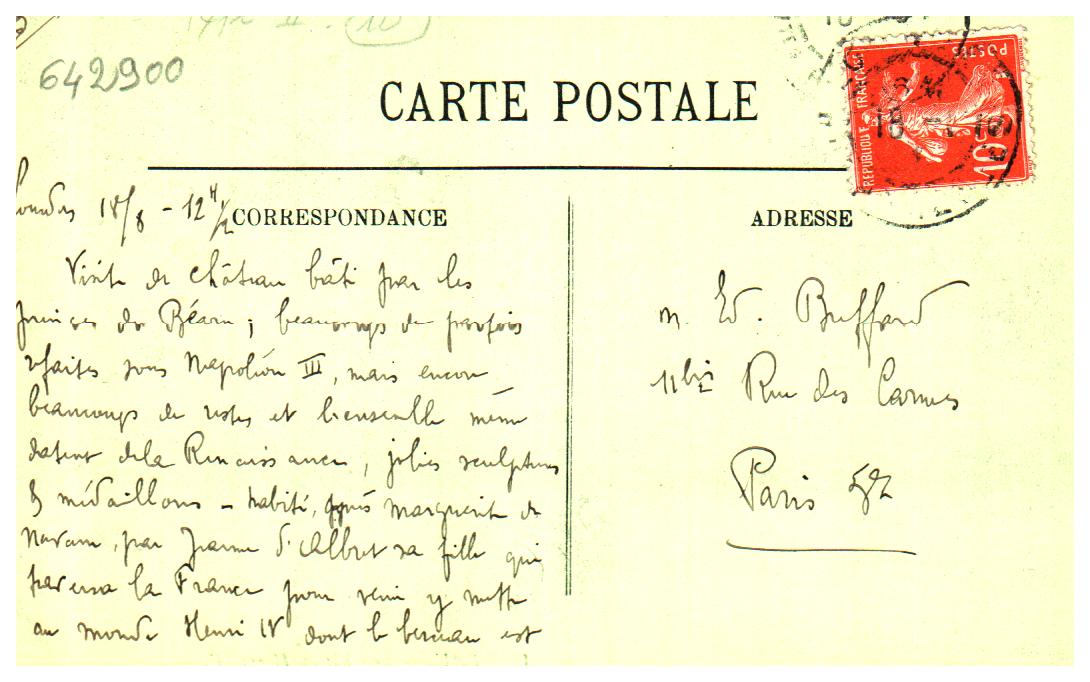 642900
CARTE POSTALE
REPUBLIQUE FRANCAISE
POSTES
10c
Lourdes 18/8 - 12 H 1/2
CORRESPONDANCE
Visite du château bâti par les
princes de Béarn ; beaucoup de parties
refaites sous Napoléon III, mais encore
beaucoup de restes et l'ensemble même
datent de la Renaissance, jolies sculptures
& médaillons - habité, après Marguerite de
Navarre, par Jeanne d'Albret sa fille qui
traversa la France pour venir y mettre
au monde Henri IV dont le berceau est
ADRESSE
M. Ed. Buffard
11 bis Rue des Carmes
Paris Ve